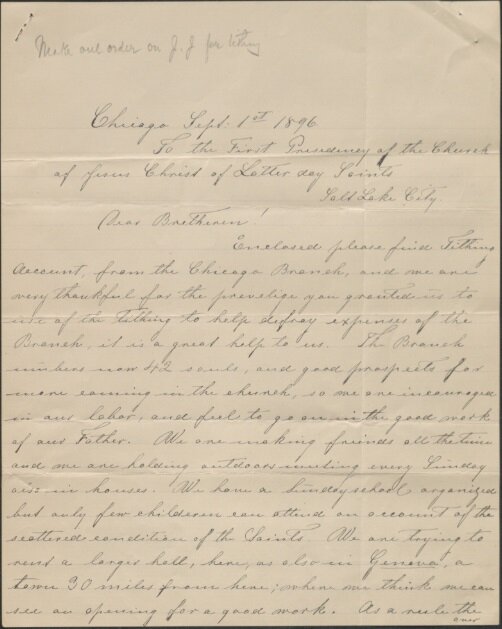 Make out order on J. J for tithing
Chicago Sept. 1st 1896
To the First Presidency of the Church
of Jesus Christ of Latter day Saints
Salt Lake City.
Dear Bretheren!
Enclosed please find Tithing
Account, from the Chicago Branch, and we are
very thankful for the prevelige you granted us to
use of the tithing to help defray expenses of the
Branch, it is a great help to us. The Branch
numbers now 42 souls, and good prospects for
more coming in the church, so we are incouraged
in our labor, and feel to go on in the good work
of our Father. We are making friends all the time
and we are holding outdoors meeting every Sunday
also in houses. We have a Sundayschool organized
but only few childeren can attend on account of the
scattered condition of the Saints. We are trying to
rent a larger hall, here, as also in Geneva, a
town 30 miles from here; where we think we can
see an opening for a good work. As a rule the
over